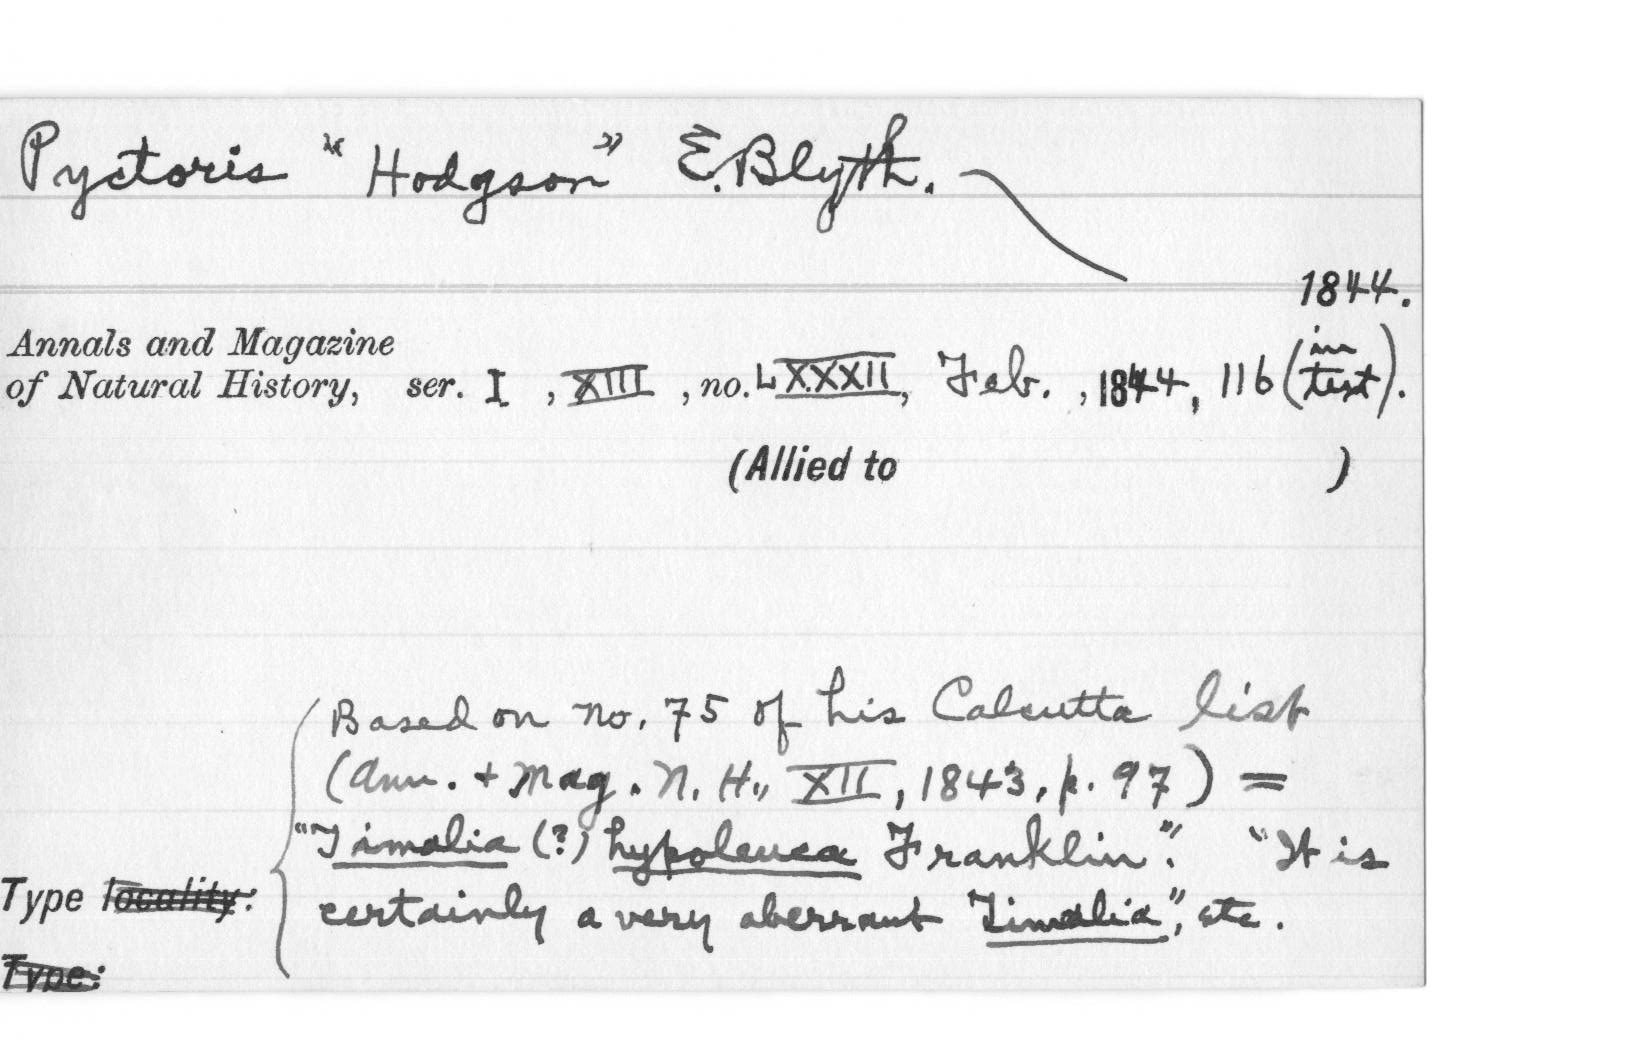 Pyctoris "Hodgson" E. Blyth.
1844.
Annals and Magazine
of Natural History, ser. I, XIII, no. LXXXII, Feb., 1844, 116 (in text).
(Allied to )
Based on no. 75 of his Calcutta list
(Ann. + Mag. N. H., XII, 1843, p. 97) =
"Timalia (?) hypoleuca Franklin". "It is
Type locality: certainly a very aberrant Timalia", etc.
Type: